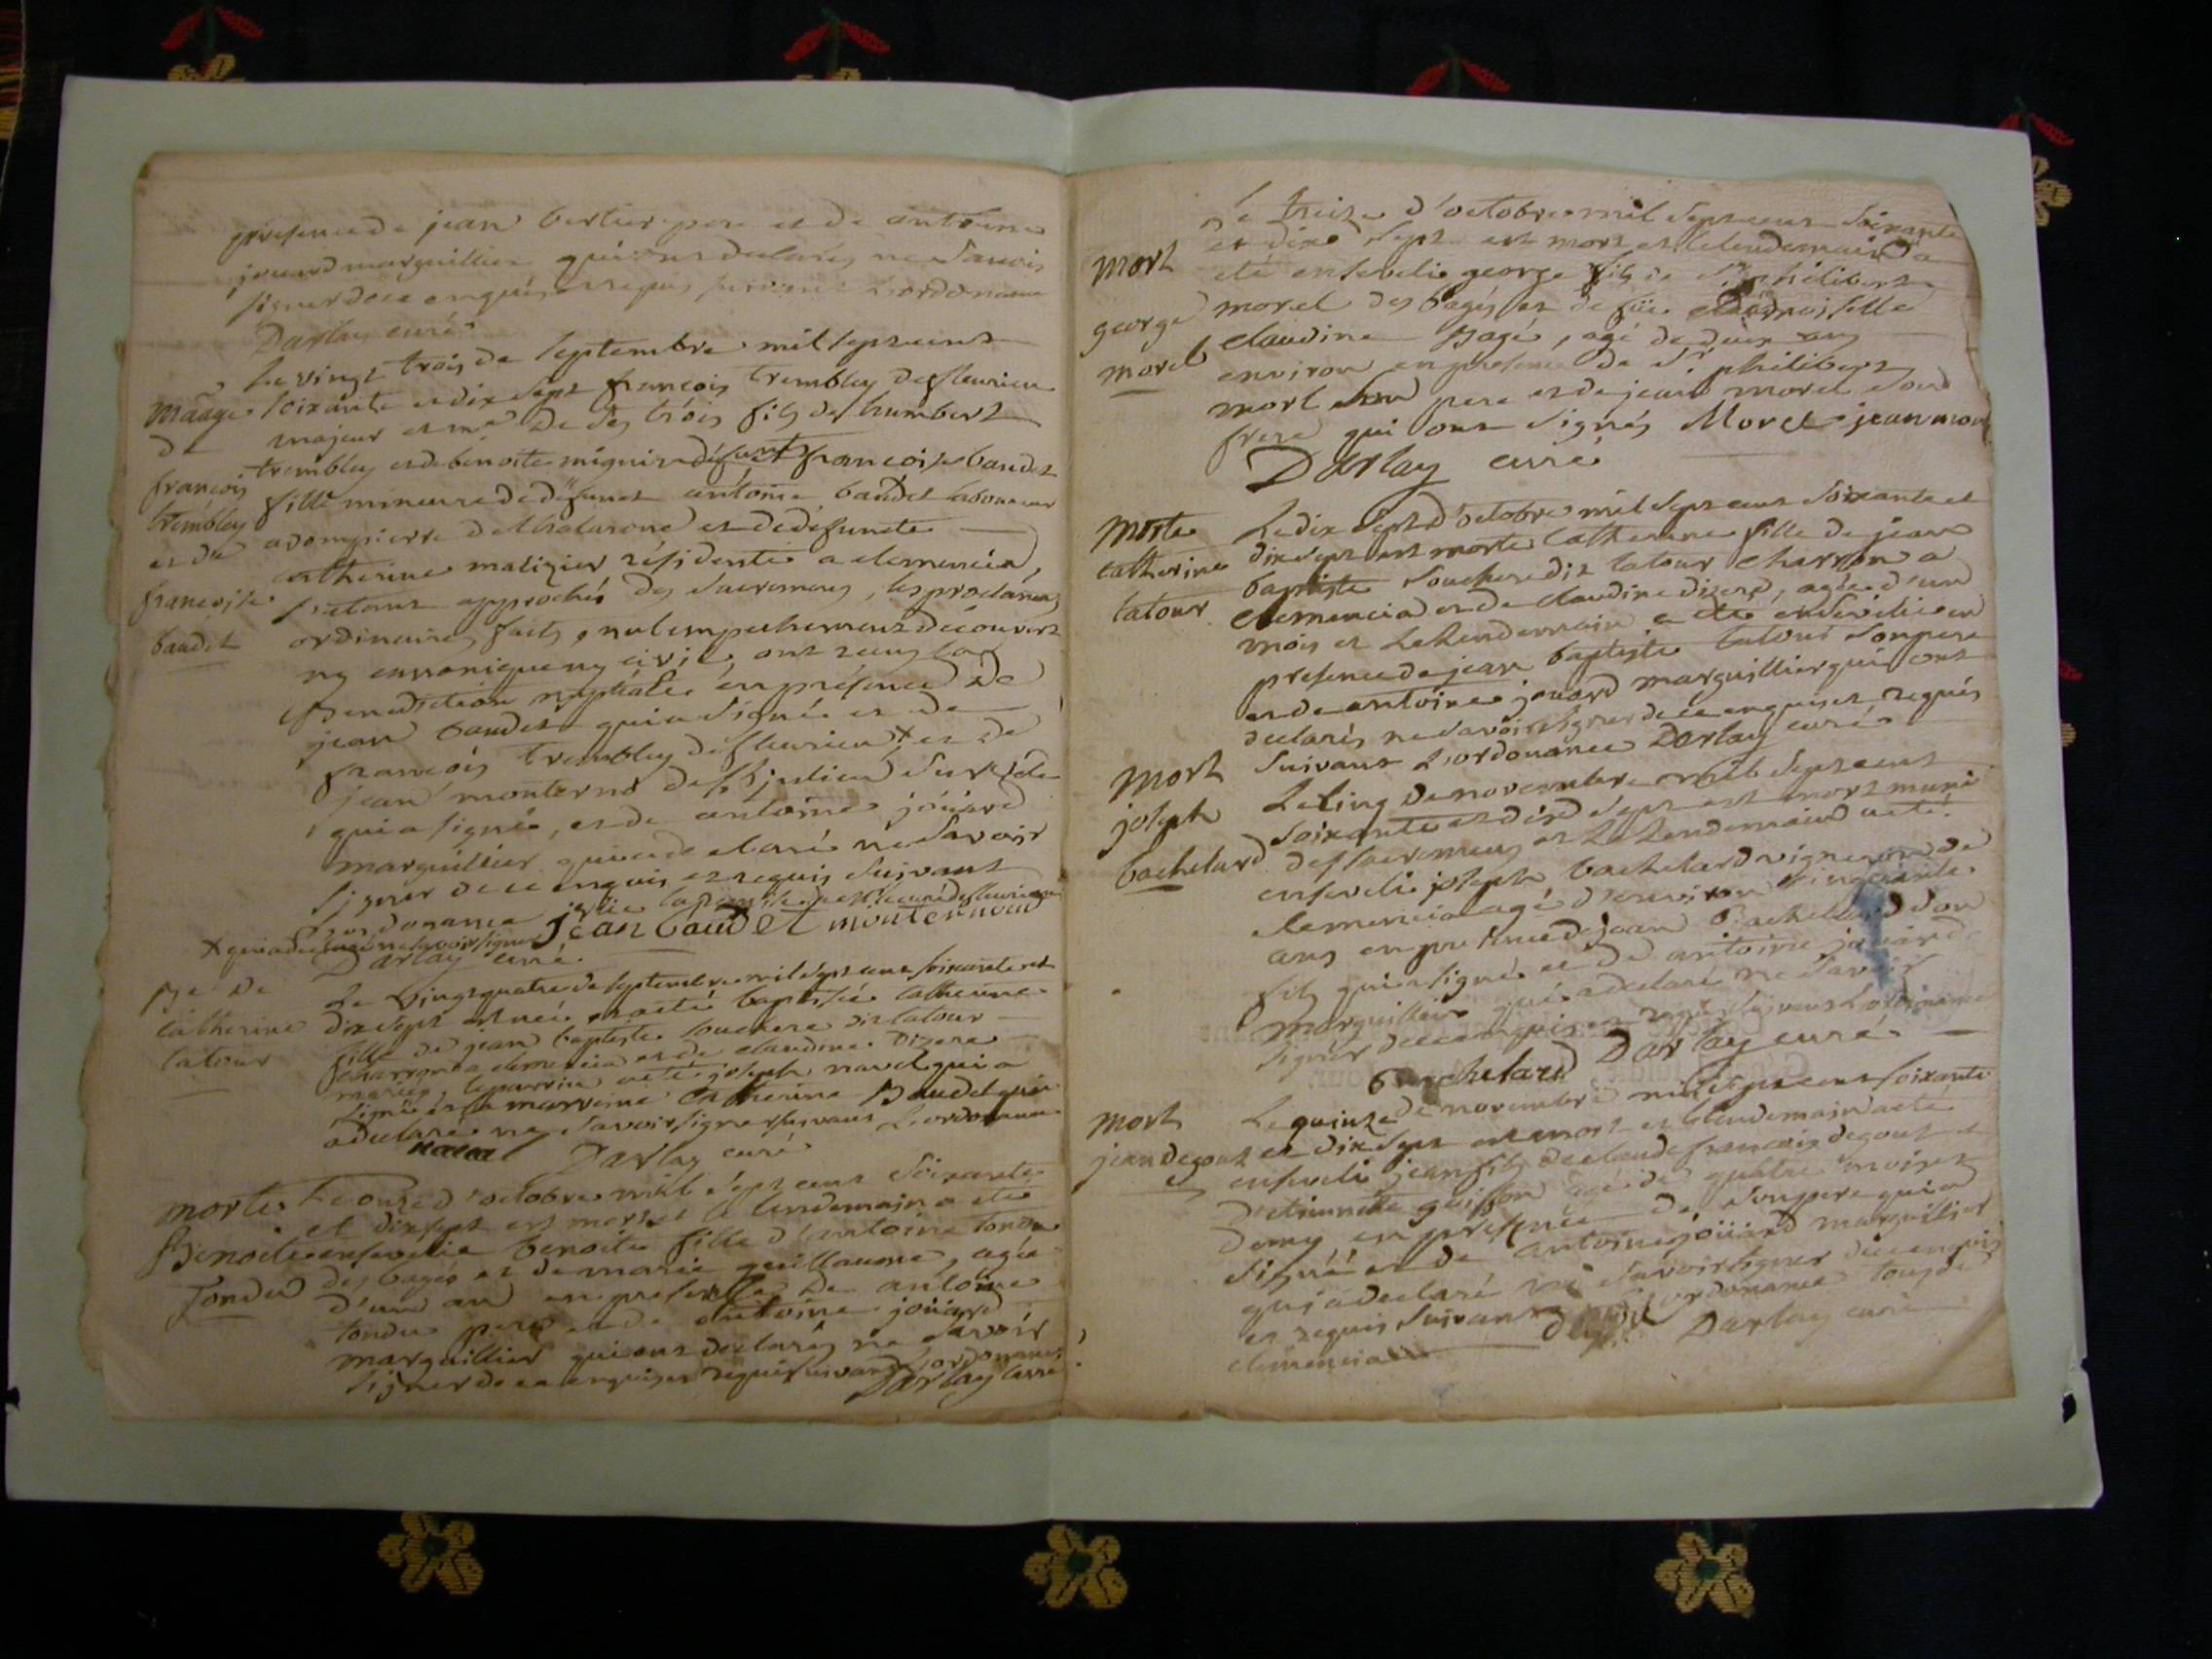 presence de jean bertier pere et de antoine
jouard marguillier qui ont declarés ne savoir
signer de ce enquis et requis suivant l'ordonance
Darlay curé
Le vingt trois de septembre mil sept cent
mãage soixante et dix sept françois trembley de fleurieu
majeur et me de des trois fils de humbert
de
trembley et de benoite françoise baudet
françois fille mineure de defunct antoine baudet laboureur
trembley a dompierre de Chalarone et de defuncte
et de catherine maligier résidente a clemencia,
françoise s'etant approchés des sacremens, les proclames
baudet ordinaires faits, nul empechement decouvert
ny canonique ny civil, ont reçu la
Benediction nuptiale en présence de
jean baudet qui a signé et de
françois trembley de fleurieu + et de
jean monternô de st julien sur
qui a signé, et de antoine joüard
marguillier qui a declaré ne savoir
signer de ce enquis et requis suivant
l'ordonance
+ qui a declaré ne savoir signer jean baudet monternoud
Darlay curé
Bme de Le vingt quatre de septembre mil sept cent soixante et
catherine dix sept est née et a eté baptisée catherine
latour fille de jean baptiste souchere dit latour
charron a clemencia et de claudine dizere
mariés, le parrein a eté joseph navel qui a
signé et la marreine catherine Baudet qui
a declaré ne savoir signer suivant l'ordonance
naval Darlay curé
morte Le onze d'octobre mil sept cent soixante
et dix sept est morte et le lendemain a eté
Benoite ensevelie benoite fille d'antoine tondu
Tondu des bagés et de marie guillaume, agée
d'un an en presence de antoine
tondu pere et de antoine joüard
marguillier qui ont declarés ne savoir
signer de ce enquis et requis suivant l'ordonance
Darlay curé
Le treize d'octobre mil sept cent soixante
et dix sept est mort et le lendemain a
mort eté enseveli george fils de Sr philibert
george morel des bagés et de
morel claudine Bagé, agé de deux ans
environ en presence de Sr philibert
morel son pere et de jean morel son
frere qui ont signés Morel jean morel
Darlay curé
morte Le dix sept d'octobre mil sept cent soixante et
catherine dix sept est morte catherine fille de jean
latour baptiste souchere dit latour charron a
clemencia et de claudine dizere, agée d'un
mois et le lendemain a eté ensevelie en
presence de jean baptiste latour son pere
et de antoine jouard marguillier qui ont
declarés ne savoir signer de ce enquis et requis
suivant l'ordonance Darlay curé
mort Le cinq de novembre mil sept cent
joseph soixante et dix sept est mort muni
bachelard des sacremens et le lendemain a eté
enseveli joseph bachelard vigneron de
clemencia agé d'environ cinquante
ans en presence de jean Bachelard son
fils qui a signé et de antoine joüard
marguillier qui a declaré ne savoir
signer de ce enquis et requis suivant l'ordonance
bachelard Darlay curé
mort Le quinze de novembre mil sept cent soixante
jean degout et dix sept est mort et le lendemain a eté
enseveli jean fils de claude françois degout et
d'etiennette guisson agé de quatre mois et
demy en presence de son pere qui a
signé et de antoine joüard marguillier
qui a declaré ne savoir signer de ce enquis
et requis suivant l'ordonance
clemencia Darlay curé